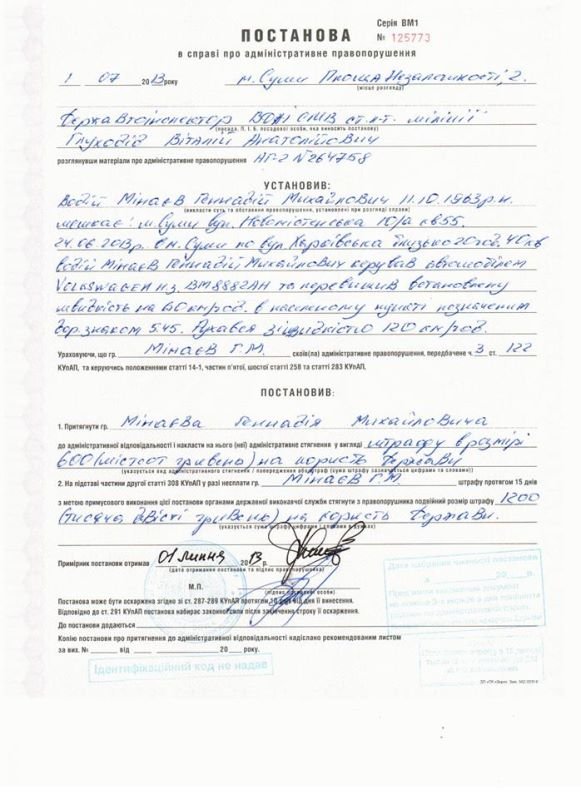 Серія ВМ1
ПОСТАНОВА № 125773
в справі про адміністративне правопорушення
1 07 2013 року м. Суми Площа Незалежності, 2.
(місце розгляду)
Держ Автоінспектор ВДАІ СМВ ст. л-т. міліції
(посада, П. І. Б. посадової особи, яка виносить постанову)
Глуходід Віталій Анатолійович
розглянувши матеріали про адміністративне правопорушення АГ-2 № 264758
УСТАНОВИВ:
Водій Мінаєв Геннадій Михайлович 11.10.1963 р.н.
(викласти суть та обставини правопорушення, установлені при розгляді справи)
мешкає: м Суми вул. Новомістенська 10/а кв 55.
24.06 2013р. в м. Суми по вул. Харківська близько 20 год. 40 хв
водій Мінаєв Геннадій Михайлович керував автомобілем
Volkswagen н.з. ВМ8882АН та перевищив встановлену
швидкість на 60 км/год. в населеному пункті позначеним
дор. знаком 5.45. Рухався зі швидкістю 120 км/год.
Ураховуючи, що гр. Мінаєв Г.М. скоїв(ла) адміністративне правопорушення, передбачене ч. 3 ст. 122
КУпАП, та керуючись положеннями статті 14-1, частин п'ятої, шостої статті 258 та статті 283 КУпАП,
ПОСТАНОВИВ:
1. Притягнути гр. Мінаєва Геннадія Михайловича
до адміністративної відповідальності і накласти на нього (неї) адміністративне стягнення у вигляді штрафу в розмірі
600 (шістсот гривень) на користь Держави
2. На підставі частини другої статті 308 КУпАП у разі несплати гр. Мінаєв Г.М штрафу протягом 15 днів
з метою примусового виконання цієї постанови органами державної виконавчої служби стягнути з правопорушника подвійний розмір штрафу 1200
(тисяча двісті гривень) на користь Держави.
(указується сума штрафу цифрами і словами в дужках)
Примірник постанови отримав 01 липня 2013 р.
(дата отримання постанови та підпис правопорушника)
М.П.
(підпис посадової особи)
Постанова може бути оскаржена згідно зі ст. 287-289 КУпАП протягом 10 днів від дня її винесення.
Відповідно до ст. 291 КУпАП постанова набирає законної сили після закінчення строку її оскарження.
До постанови додаються
Копію постанови про притягнення до адміністративної відповідальності надіслано рекомендованим листом
за вих. № від 20 року.
Ідентифікаційний код не надав
Дата набрання чинності постанови